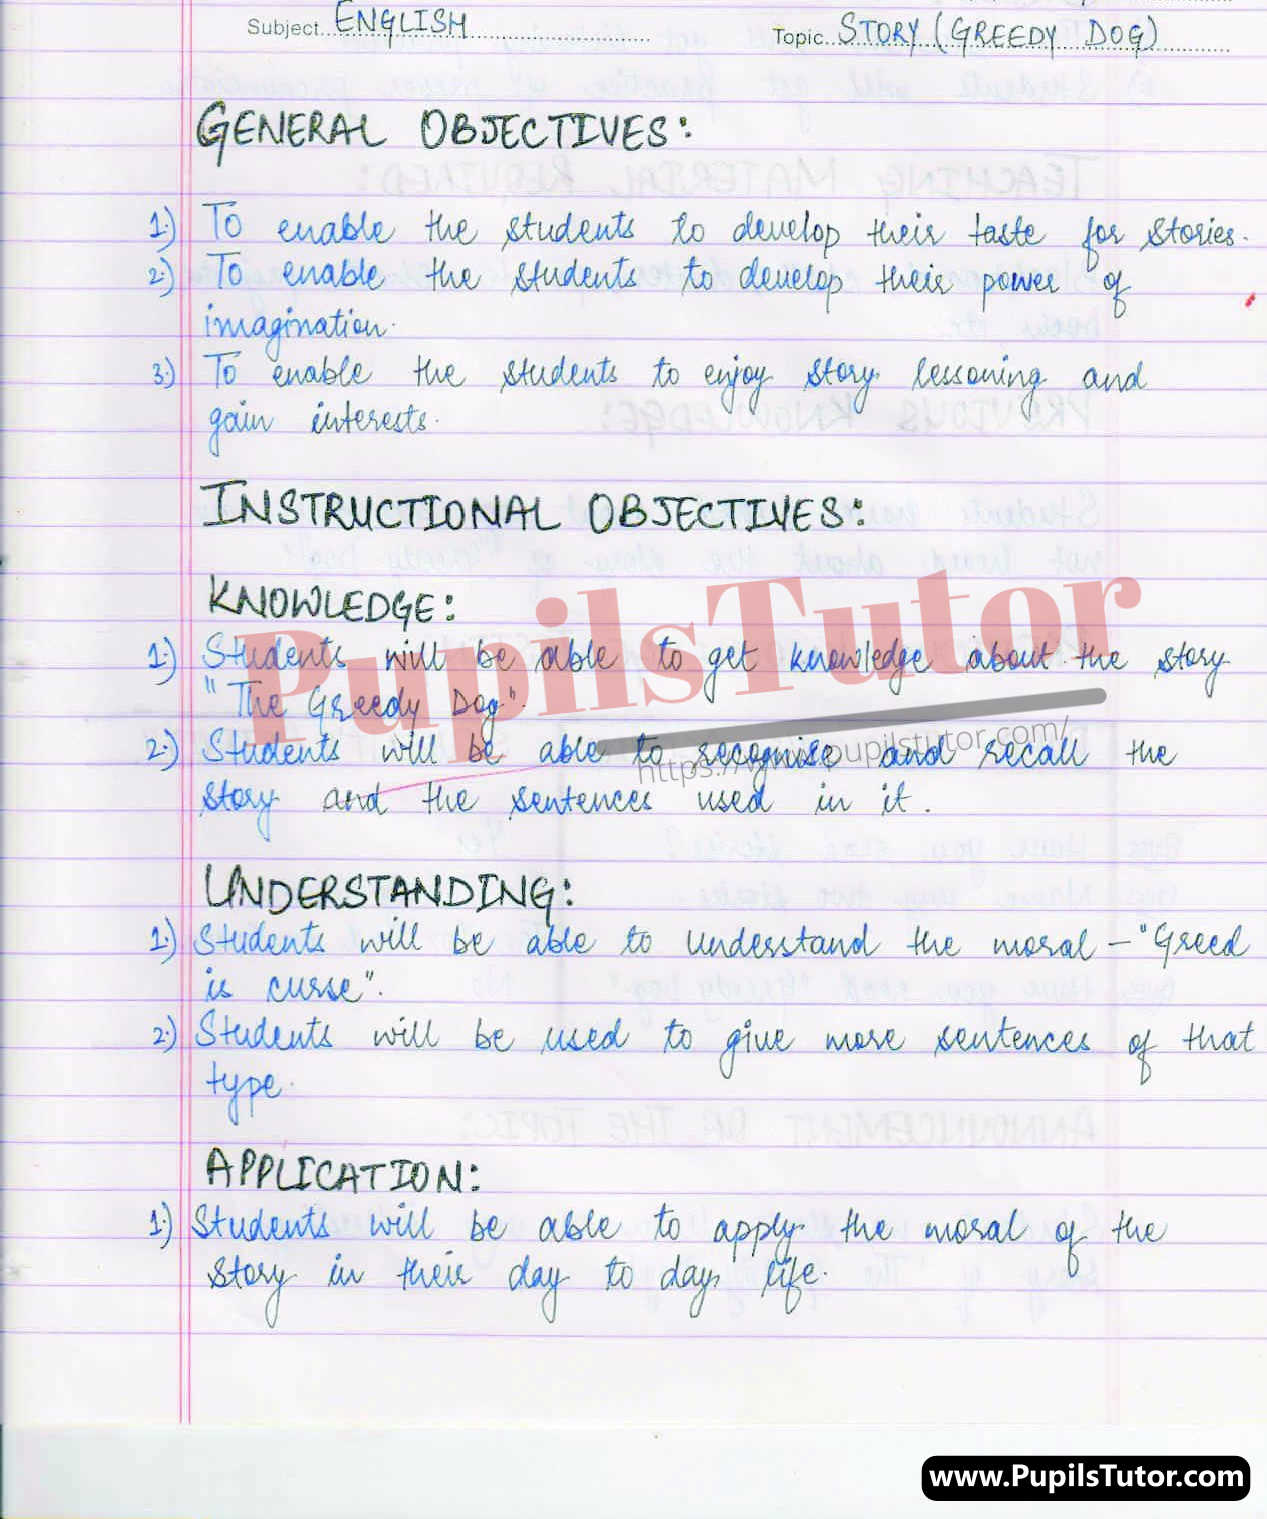 Subject ENGLISH Topic STORY (GREEDY DOG)
GENERAL OBJECTIVES:
1.) To enable the students to develop their taste for stories.
2.) To enable the students to develop their power of
imagination.
3.) To enable the students to enjoy story lessoning and
gain interests.
INSTRUCTIONAL OBJECTIVES:
KNOWLEDGE:
1.) Students will be able to get knowledge about the story
"The Greedy Dog".
2.) Students will be able to recognise and recall the
story and the sentences used in it.
PupilsTutor
https://www.pupilstutor.com/
UNDERSTANDING:
1.) Students will be able to understand the moral - "Greed
is curse".
2.) Students will be used to give more sentences of that
type.
APPLICATION:
1.) Students will be able to apply the moral of the
story in their day to day life.
www.PupilsTutor.com